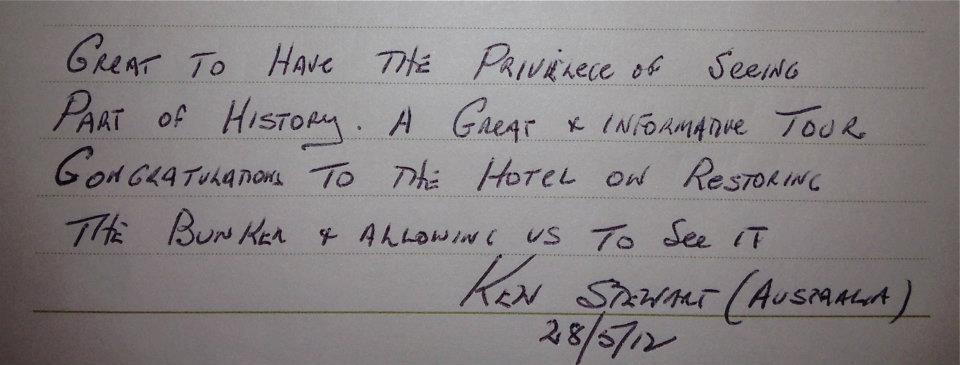 GREAT TO HAVE THE PRIVILEGE OF SEEING
PART OF HISTORY. A GREAT & INFORMATIVE TOUR
CONGRATULATIONS TO THE HOTEL ON RESTORING
THE BUNKER & ALLOWING US TO SEE IT
KEN STEWART (AUSTRALIA)
28/5/12